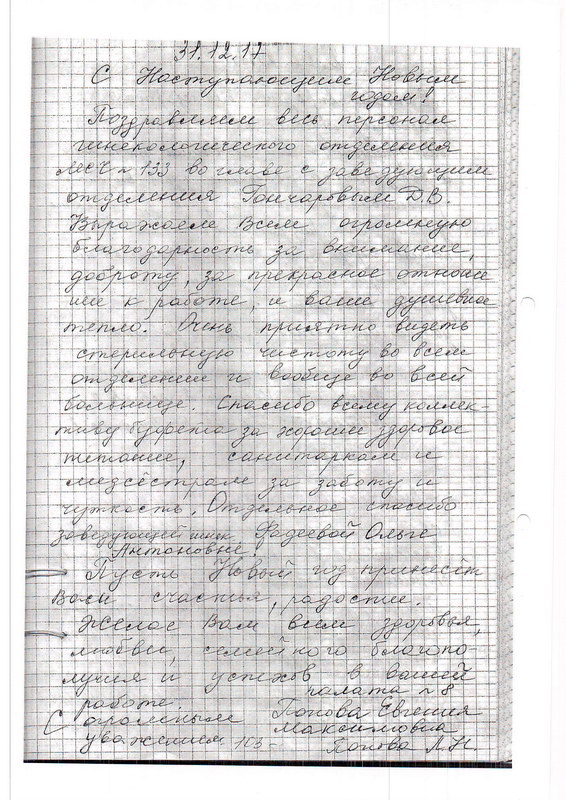 31.12.17
С Наступающим Новым
годом!
Поздравляем весь персонал
гинекологического отделения
МСЧ № 133 во главе с заведующим
отделения Гончаровым Д.В.
Выражаем всем огромную
благодарность за внимание,
доброту, за прекрасное отноше
ние к работе, и ваше душевное
тепло. Очень приятно видеть
стерильную чистоту во всем
отделении и вообще во всей
больнице. Спасибо всему коллек-
тиву буфета за хорошее здоровое
питание, санитаркам и
медсёстрам за заботу и
чуткость. Отдельное спасибо
заведующей гинек. Фадеевой Ольге
Антоновне!
Пусть Новый год принесёт
Вам счастья, радости.
Желаю Вам всем здоровья,
любви, семейного благопо-
лучия и успехов в вашей
работе. палата № 8
С огромным Попова Евгения
уважением Максимовна
Попова Л.Н.